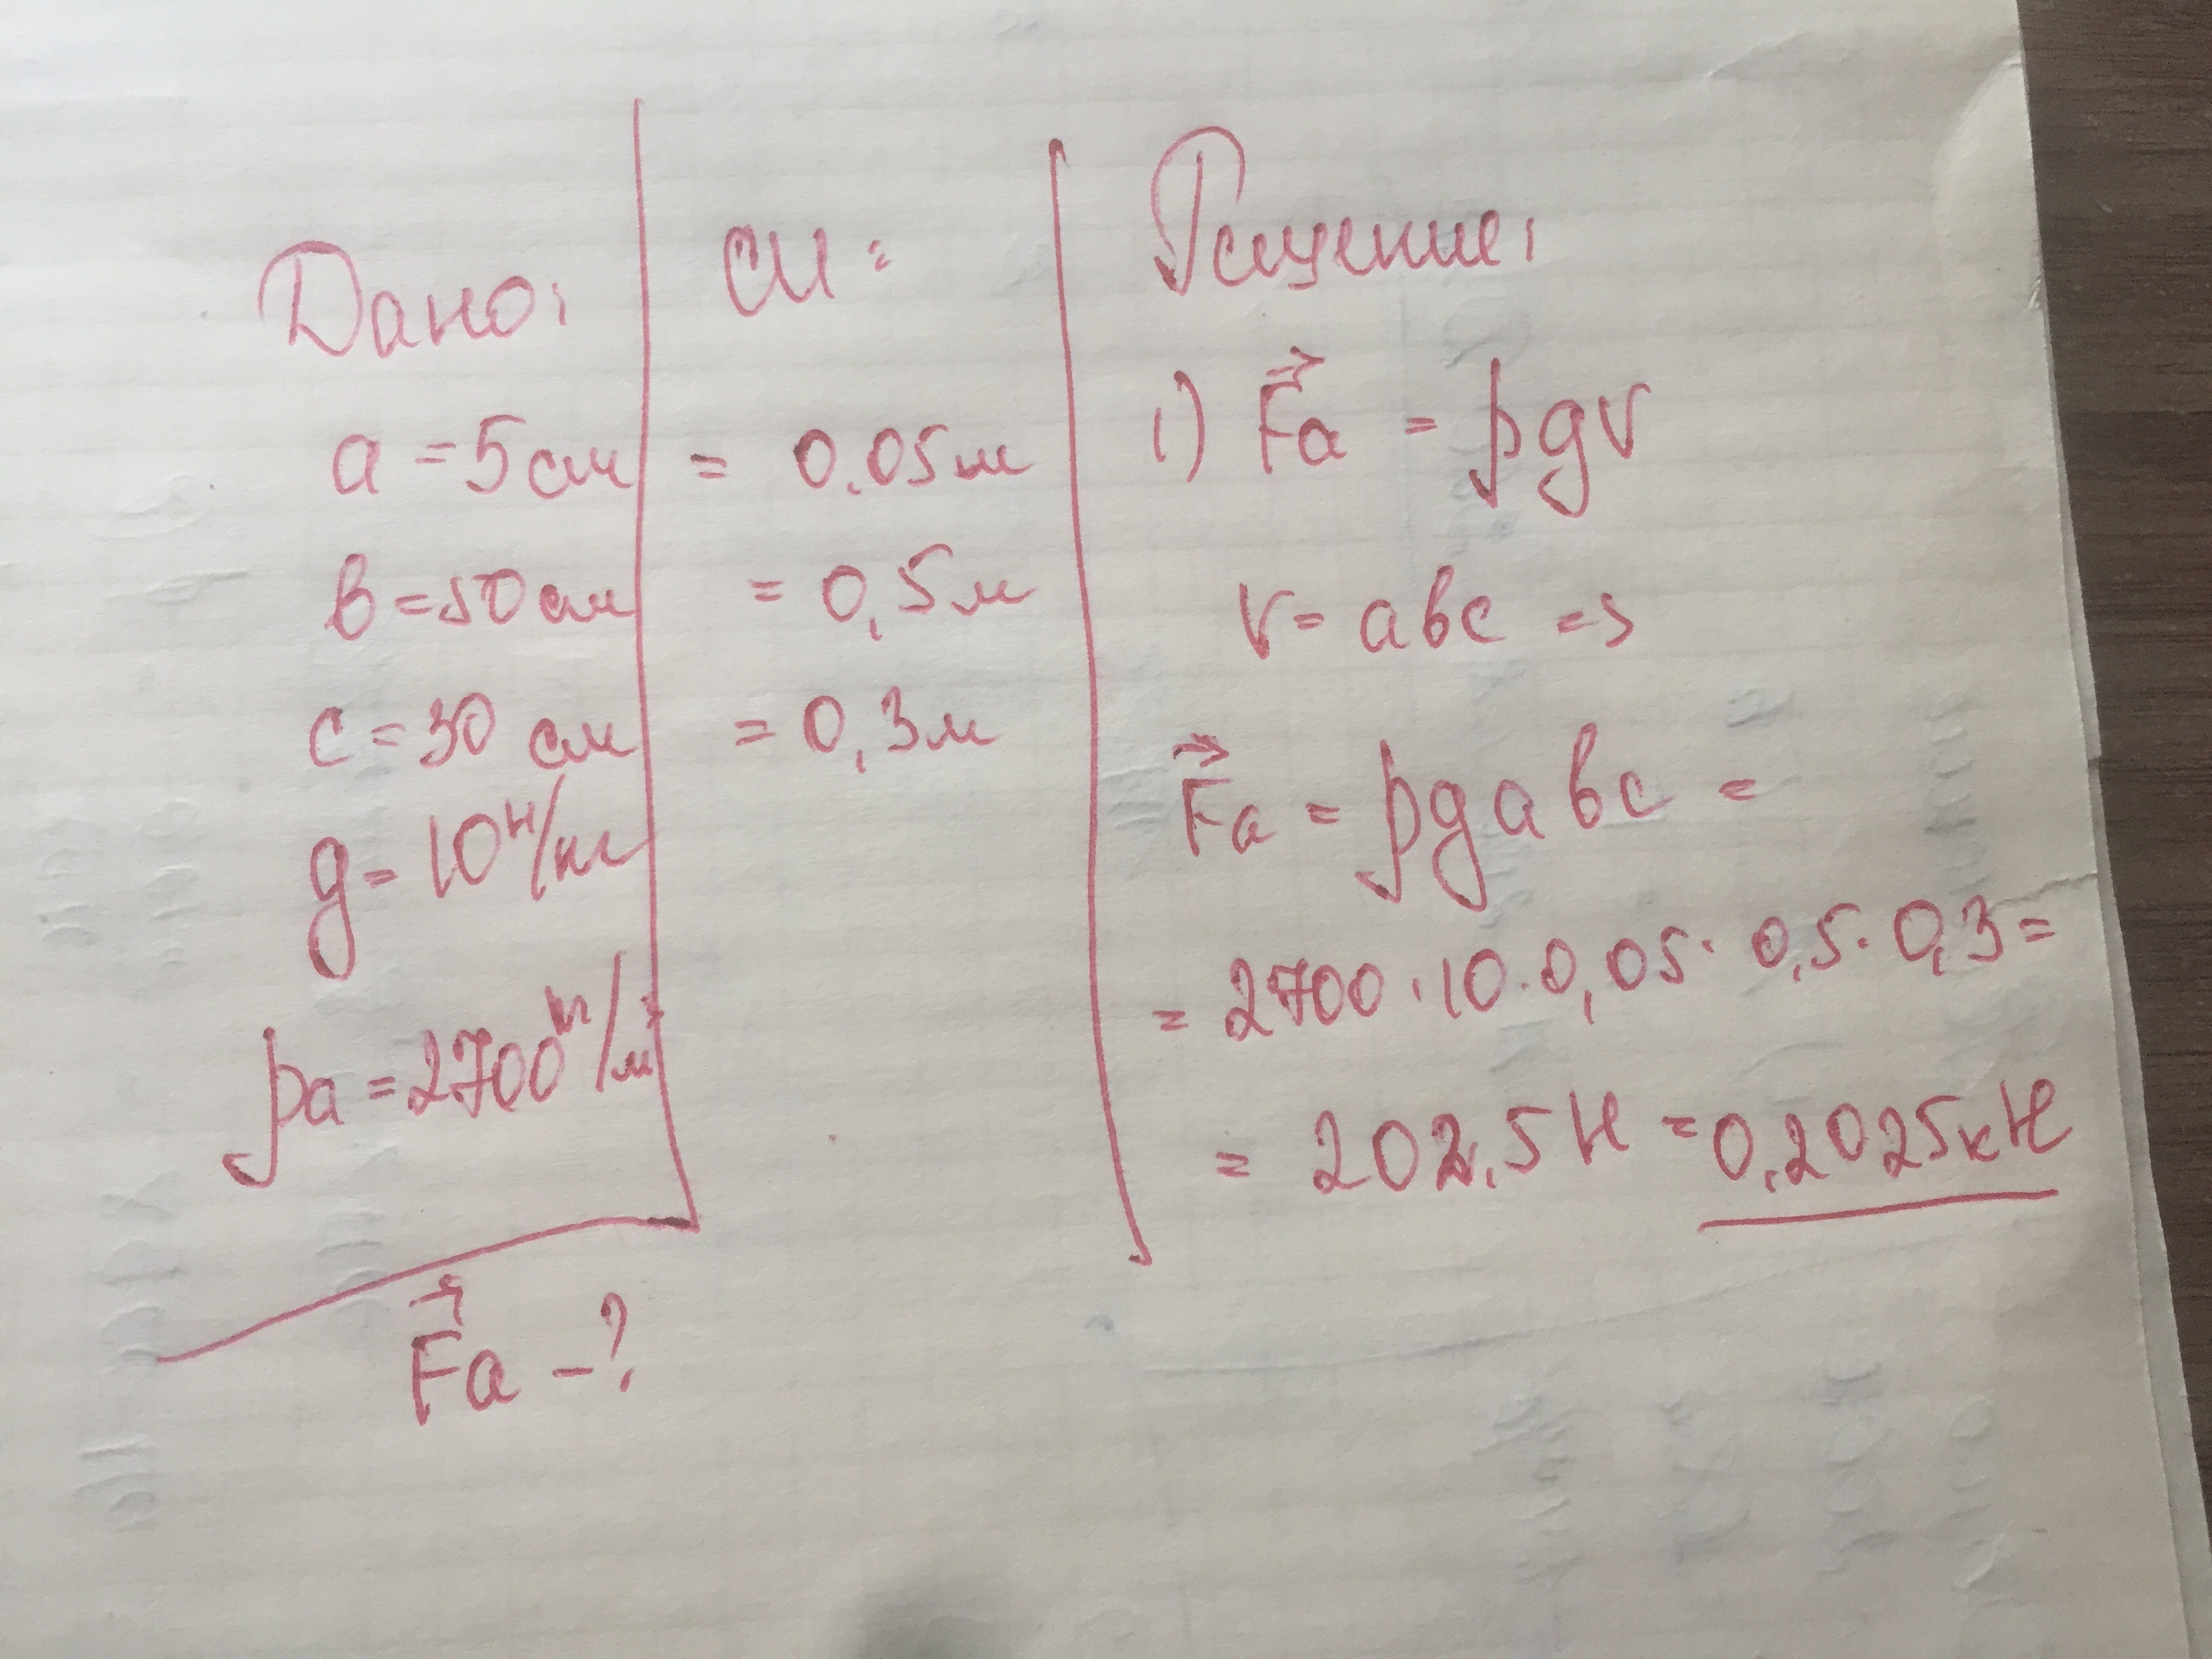 Дано:
a = 5 см
b = 50 см
c = 30 см
g = 10 Н/кг
ρa = 2700 кг/м³
F⃗a - ?
СИ:
= 0.05 м
= 0,5 м
= 0,3 м
Решение:
1) F⃗a = ρgV
V = abc =>
F⃗a = ρgabc =
= 2700 · 10 · 0,05 · 0,5 · 0,3 =
= 202,5 Н = 0,2025 кН